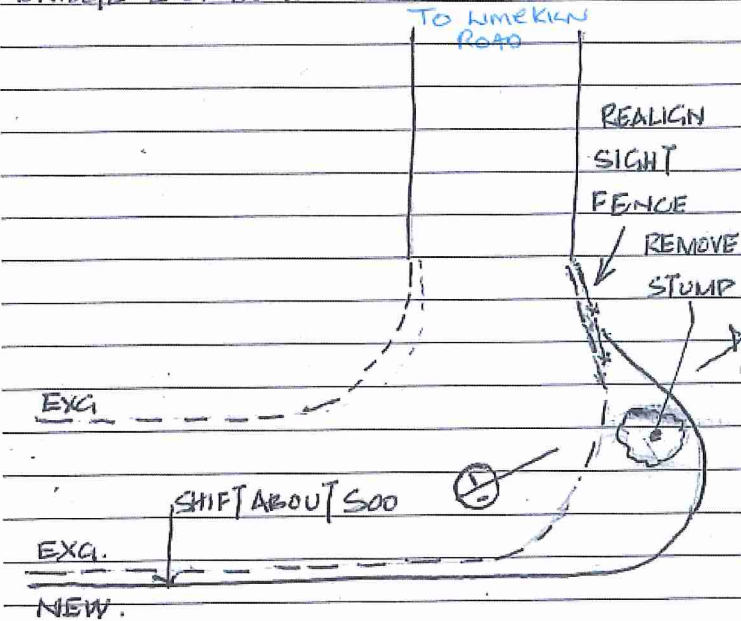 TO LIMEKILN
ROAD
REALIGN
SIGHT
FENCE
REMOVE
STUMP
EXG
SHIFT ABOUT 500
EXG.
NEW.